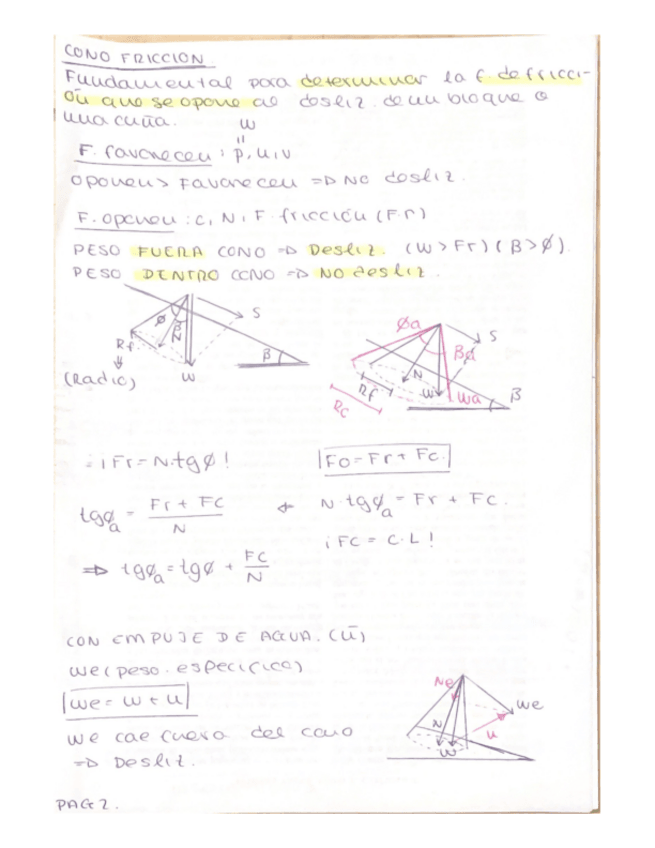 CONO FRICCION
Fundamental para determinar la f de fricci-
ón que se opone al desliz. de un bloque o
una cuña.
W
"
F. favorecen : p, u, v
oponen > Favorecen => NO desliz.
F. oponen : c, N, F. fricción (Fr)
PESO FUERA CONO => Desliz. (W > Fr) (β > φ).
PESO DENTRO CONO => NO desliz.
φ β N S
Rf
(Radio)
W
β
φa S
βa
N
Rf W Wa β
Rc
∴ ¡Fr = N·tgφ!
Fo = Fr + Fc.
tgφa = Fr + Fc / N
N·tgφa = Fr + Fc.
¡FC = C·L!
=> tgφa = tgφ + FC / N
CON EMPUJE DE AGUA. (ū)
We (peso. especifico)
We = W + U
We cae fuera del cono
=> Desliz.
Ne
We
N
u
W
PAG 2.